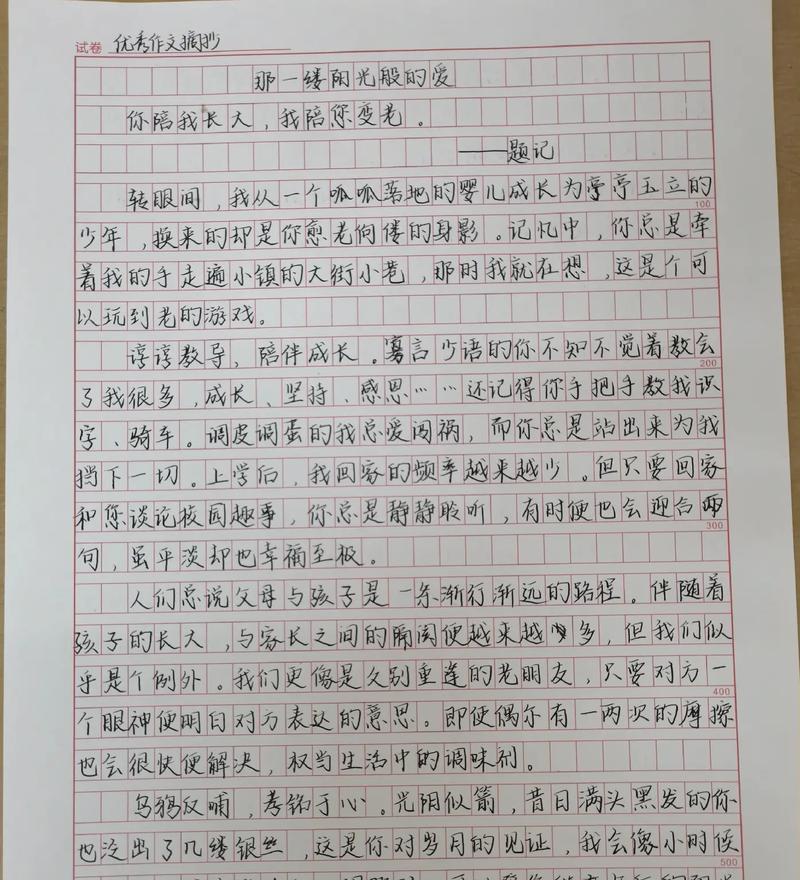 试卷 优秀作文摘抄
那一缕阳光般的爱
你陪我长大，我陪您变老。
——题记
转眼间，我从一个呱呱落地的婴儿成长为亭亭玉立的
100
少年，换来的却是你愈老佝偻的身影。记忆中，你总是牵
着我的手走遍小镇的大街小巷，那时我就在想，这是个可
以玩到老的游戏。
谆谆教导，陪伴成长。寡言少语的你不知不觉着教会
200
了我很多，成长、坚持、感恩……还记得你手把手教我识
字、骑车。调皮调蛋的我总爱闯祸，而你总是站出来为我
挡下一切。上学后，我回家的频率越来越少。但只要回家
和您谈论校园趣事，你总是静静聆听，有时便也会迎合两
300
句，虽平淡却也幸福至极。
人们总说父母与孩子是一条渐行渐远的路程。伴随着
孩子的长大，与家长之间的隔阂便越来越多，但我们似
乎是个例外。我们更像是久别重逢的老朋友，只要对方一
400
个眼神便明白对方表达的意思。即使偶尔有一两次的摩擦
也会很快便解决，权当生活中的调味剂。
乌鸦反哺，孝铭于心。光阳似箭，昔日满头黑发的你
也泛出了几缕银丝，这是你对岁月的见证，我会像小时候
500